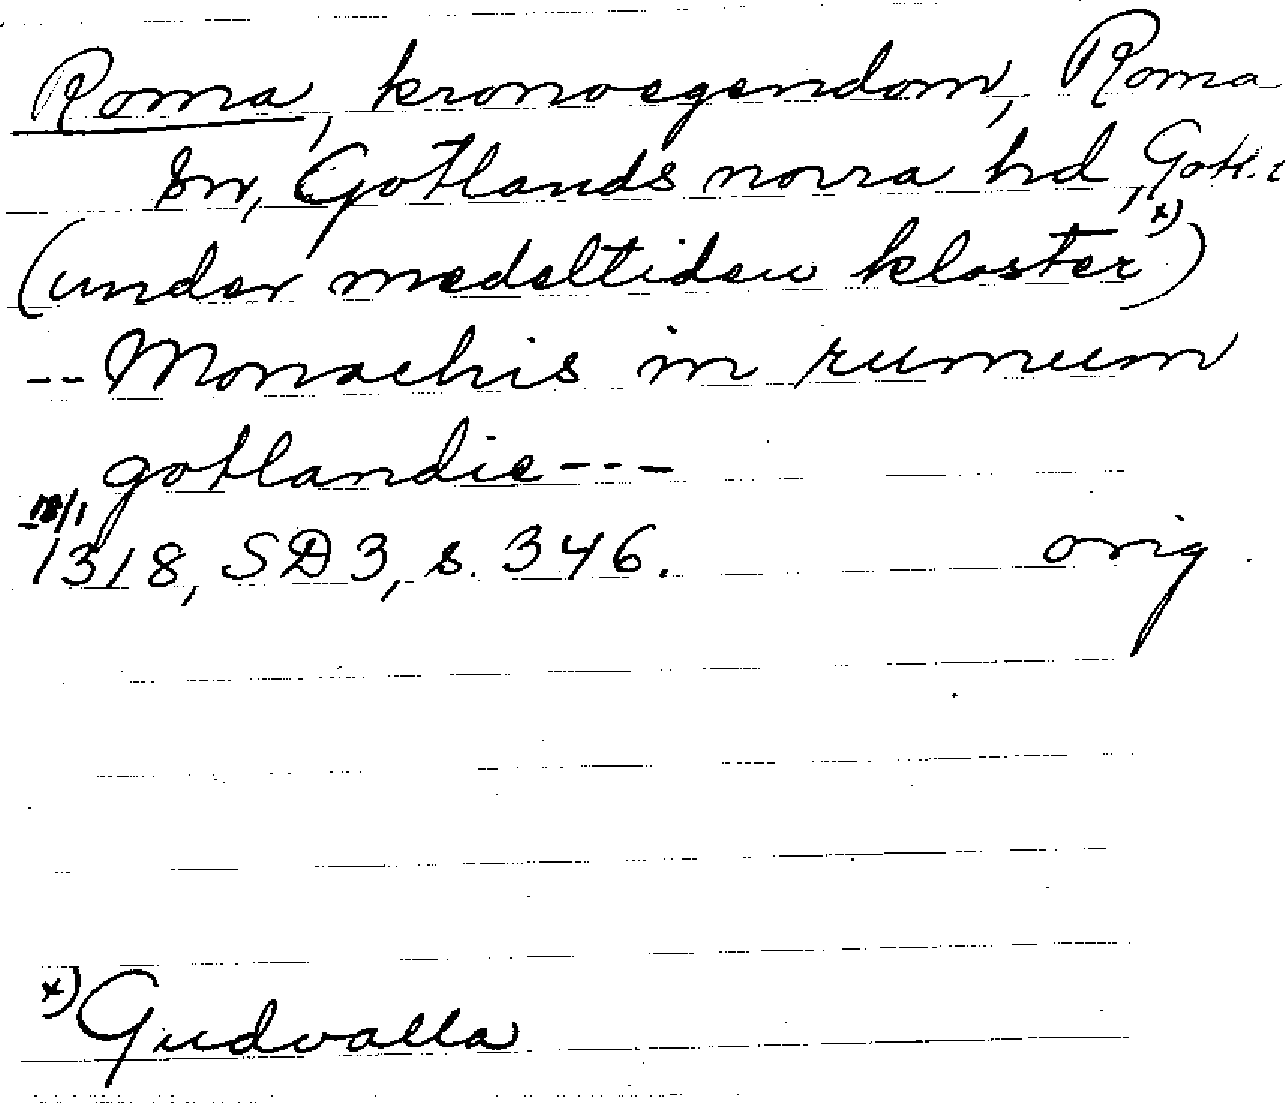 Roma, kronoegendom, Roma
sn, Gotlands norra hd, Gotl. l
(under medeltiden kloster x))
-- Monachis in rumeum
gotlandie ---
18/1
1318, SD3, s. 346. orig.
x) Gudvalla